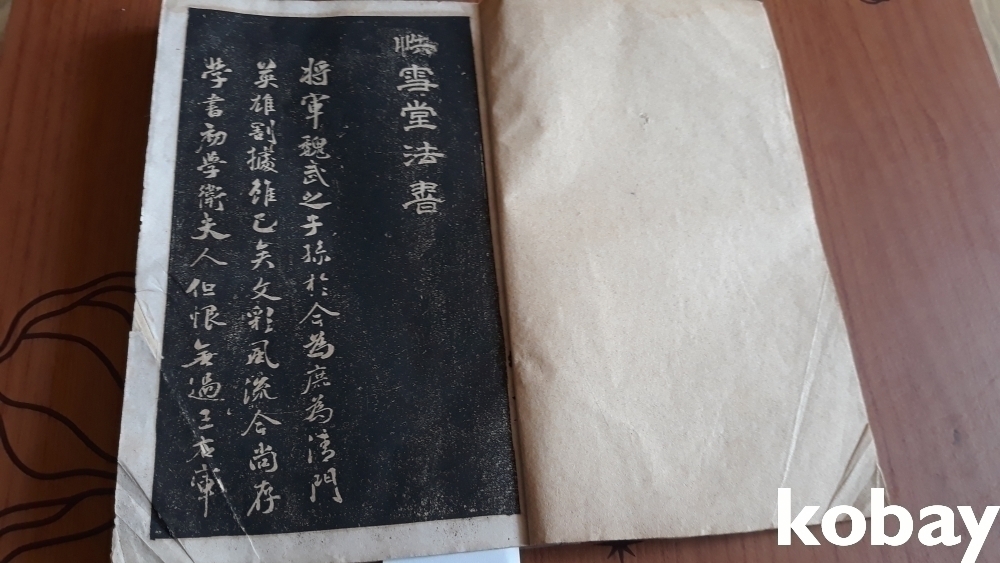 快雪堂法書
将軍魏武之子孫於今為庶為清門
英雄割據雖已矣文彩風流今尚存
學書初學衛夫人但恨無過王右軍
kobay